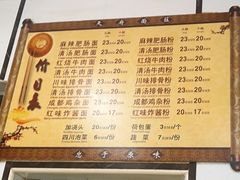 天府面族
竹日来
麻辣肥肠面 23元/份 20元/份
麻辣肥肠粉 23元/份 20元/份
清汤肥肠面 23元/份 20元/份
清汤肥肠粉 23元/份 20元/份
红烧牛肉面 23元/份 20元/份
红烧牛肉粉 23元/份 20元/份
清汤牛肉面 23元/份 20元/份
清汤牛肉粉 23元/份 20元/份
川味排骨面 23元/份 20元/份
川味排骨粉 23元/份 20元/份
清汤排骨面 23元/份 20元/份
清汤排骨粉 23元/份 20元/份
成都鸡杂面 23元/份 20元/份
成都鸡杂粉 23元/份 20元/份
红味炸酱面 23元/份 20元/份
红味炸酱粉 23元/份 20元/份
加浇头 20元/份
荷包蛋 3元/个
四川泡菜 6元/份
蔬菜 7元/份
忠于原味